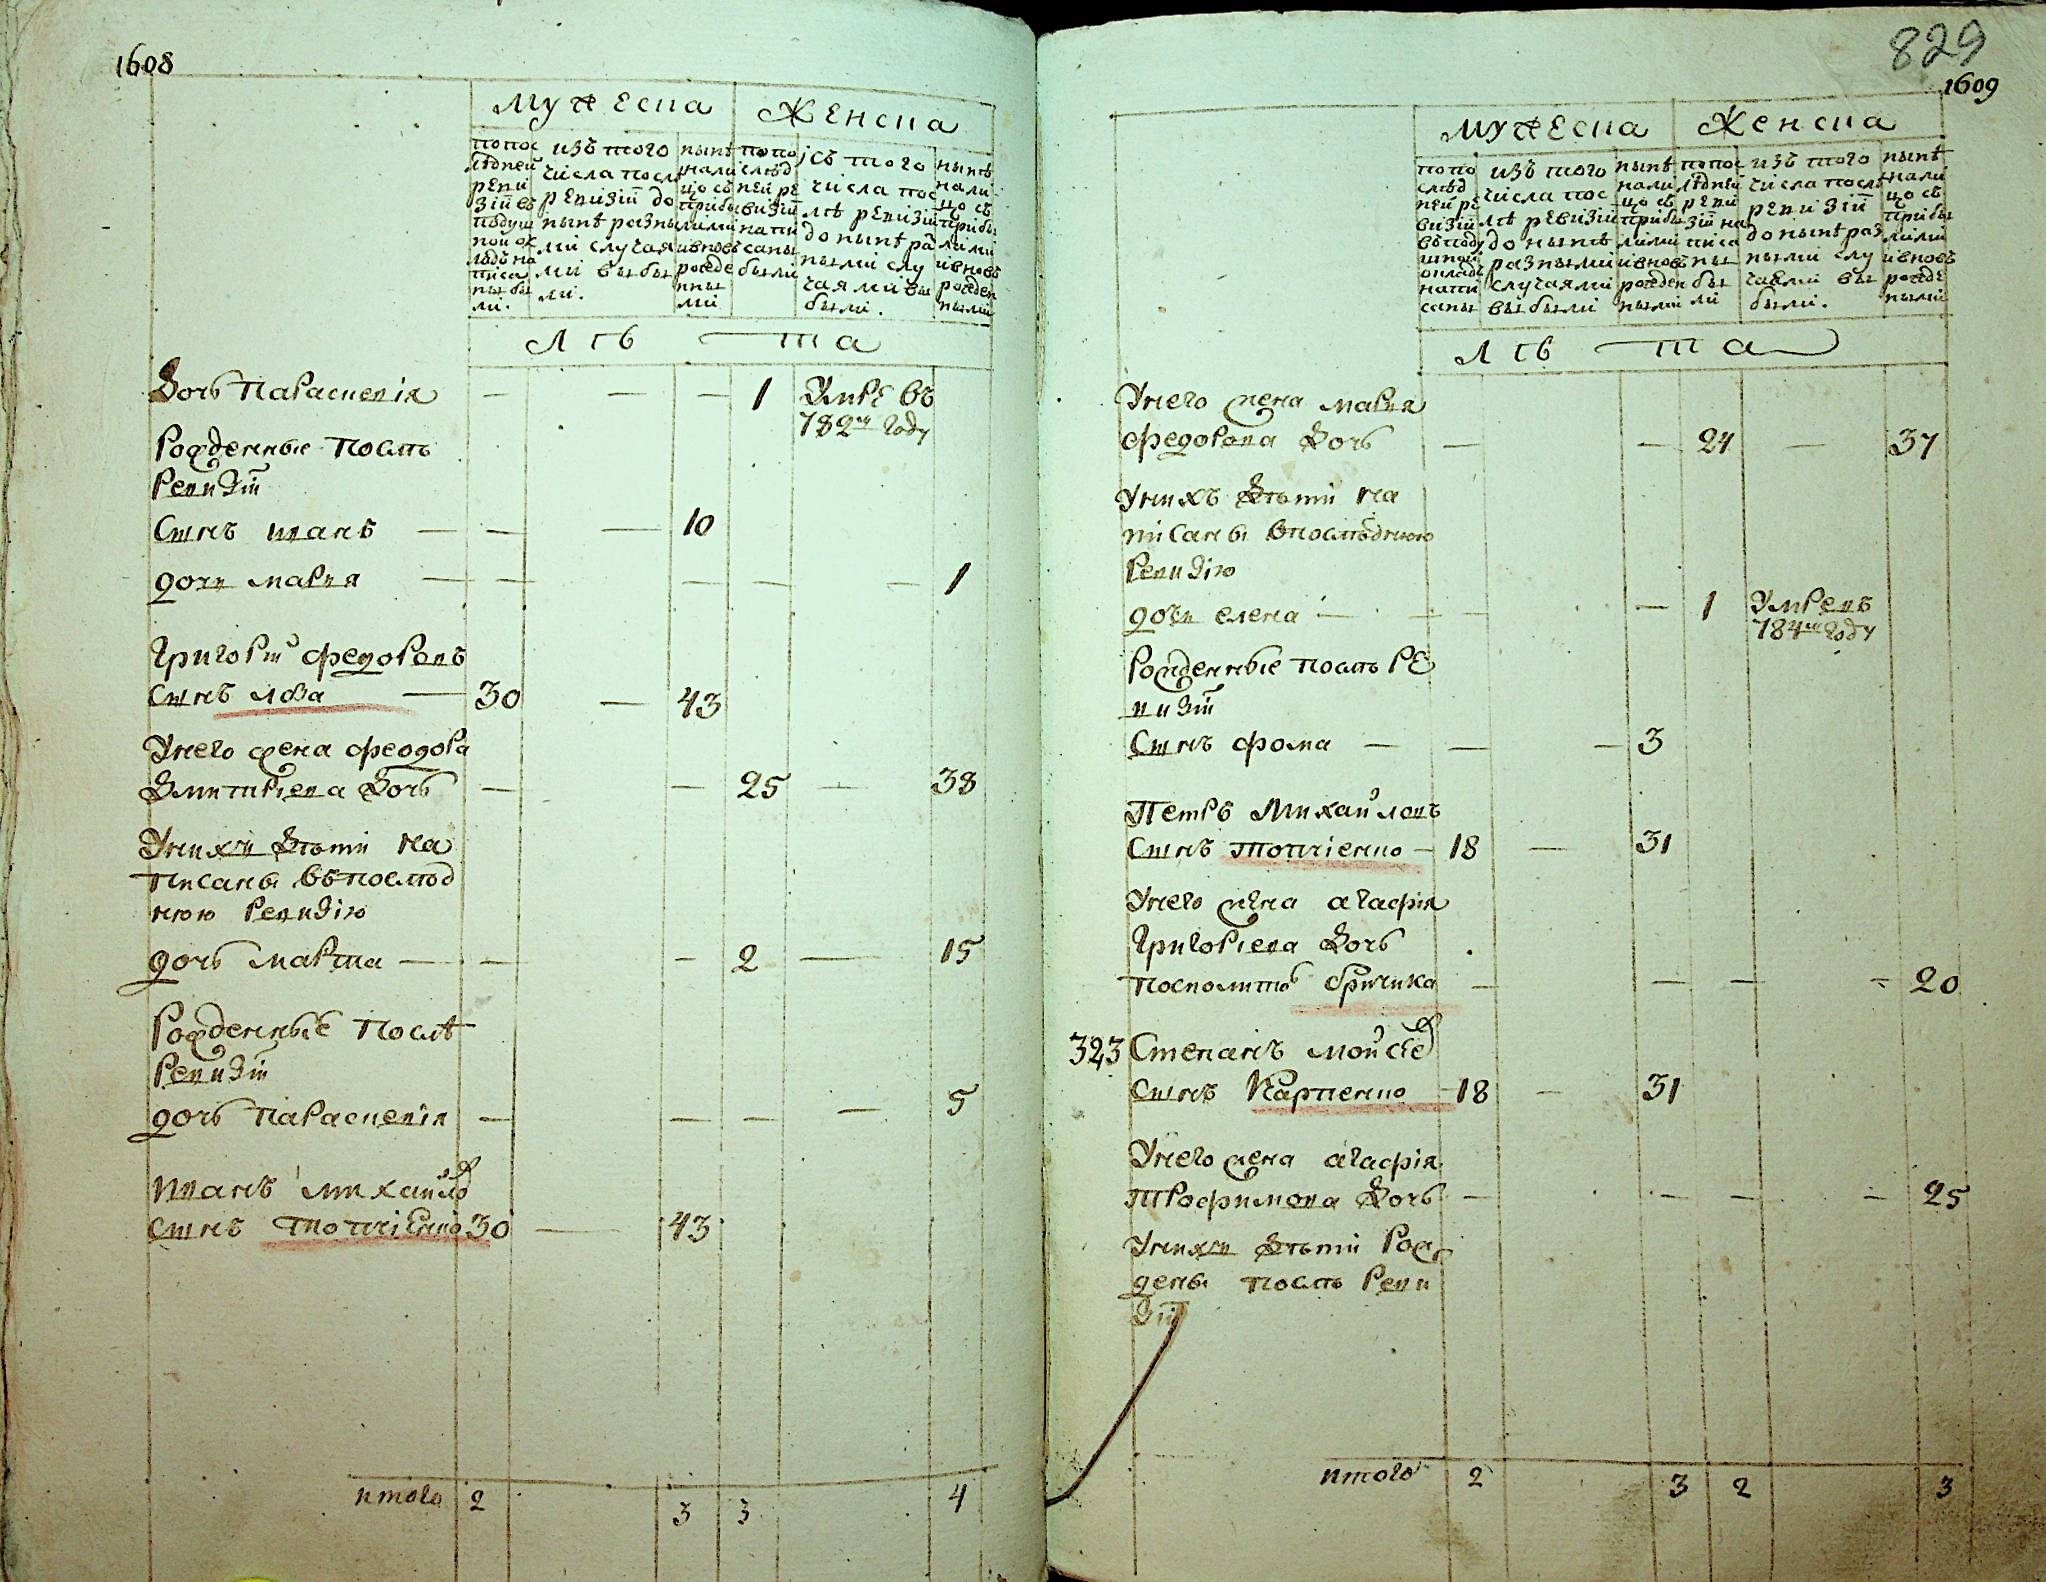 1608
Мужеска Женска
По послѣдней ревизіи въ подушной окладъ написаны были.
изъ того числа послѣ ревизіи до нынѣ разными случаями выбыли.
нынѣ на лицо съ прибылими и вновь рожденными
по послѣдней ревизіи написаны были
изъ того числа послѣ ревизіи до нынѣ разными случаями выбыли.
нынѣ на лицо съ прибылими и вновь рожденными
Лѣта
Дочь Параскевія — — — 1 Умре въ
782м году
Рожденные послѣ
Ревизіи
Сынъ иванъ — — — 10
дочи мария — — — — — 1
Григорій федоровъ
сынъ лѳза — 30 — 43
У него жена феодора
Дмитріева дочь — — 25 — 38
У них дѣти на
писаны въ послѣд
нюю Ревизію
дочь марѳа — — — 2 — 15
Рожденные послѣ
Ревизіи
дочь Параскевія — — — — 5
Иванъ михайлов
сынъ топчіенко 30 — 43
итого 2 3 3 4
829
1609
Мужеска Женска
по послѣдней ревизіи въ подушной окладъ написаны
изъ того числа послѣ ревизіи до нынѣ разными случаями выбыли
нынѣ на лицо съ прибылими и вновь рожденными
по послѣдней ревизіи написаны были
изъ того числа послѣ ревизіи до нынѣ разными случаями выбыли.
нынѣ на лицо съ прибылими и вновь рожденными
Лѣта
У него жена мария
федорова дочь — — 24 — 37
У нихъ дѣти на
писаны в послѣднюю
Ревизію
дочи елена — — — — 1 Умре въ
784м году
Рожденные послѣ ре
визіи
Сынъ фома — — — 3
Петръ Михайловъ
Сынъ топчіенко — 18 — 31
У него жена агафія
Григоріева дочь
посполитого бричика — — — — 20
323 Степанъ мойсіев
сынъ Карпенко — 18 — 31
У него жена агафія
Трофимова дочь — — — — 25
У них дѣти рож
дены послѣ реви
зіи
итого 2 3 2 3